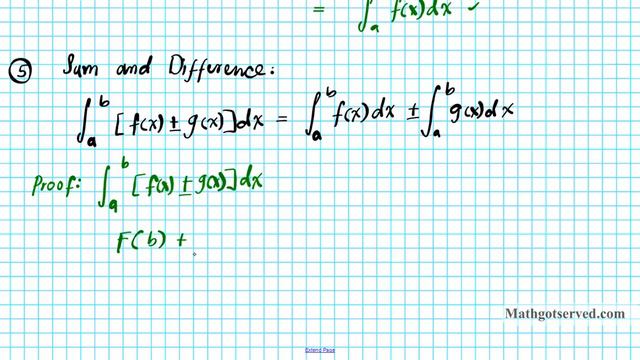 = ∫ₐ f(x)dx ✓
⑤ Sum and Difference:
∫ₐᵇ [f(x) ± g(x)]dx = ∫ₐᵇ f(x)dx ± ∫ₐᵇ g(x)dx
Proof: ∫ₐᵇ [f(x) ± g(x)]dx
F(b) +
Mathgotserved.com
Extend Page